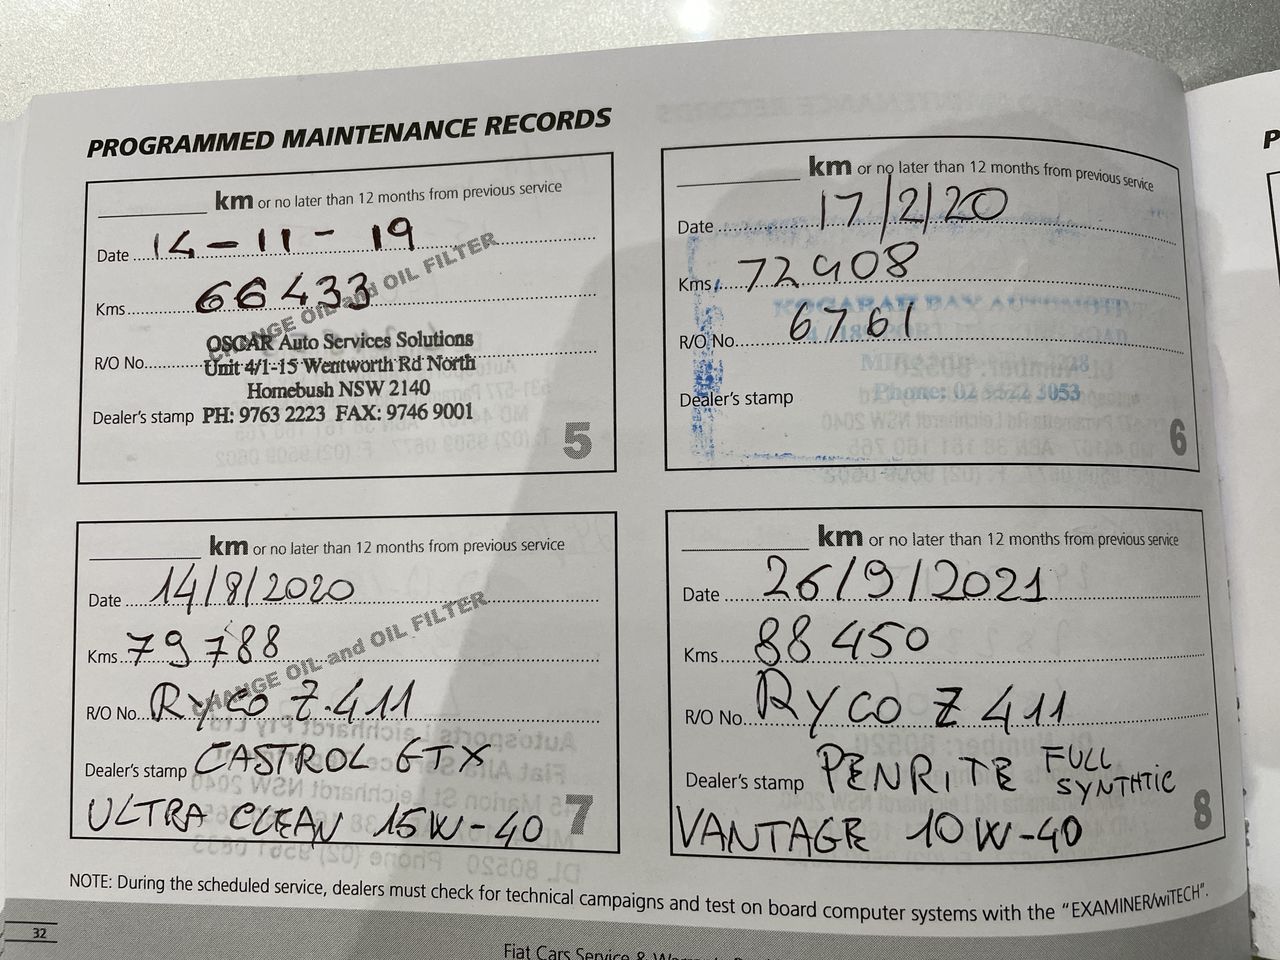 PROGRAMMED MAINTENANCE RECORDS
km or no later than 12 months from previous service
Date 14-11-19
Kms 66433
CHANGE OIL and OIL FILTER
R/O No.
OSCAR Auto Services Solutions
Unit 4/1-15 Wentworth Rd North
Homebush NSW 2140
Dealer's stamp PH: 9763 2223 FAX: 9746 9001
5
km or no later than 12 months from previous service
Date 17/2/20
Kms 72908
R/O No. 6761
KOGARAH BAY
Dealer's stamp Phone: 02 3053
6
km or no later than 12 months from previous service
Date 14/8/2020
Kms 79788
CHANGE OIL and OIL FILTER
R/O No. RYCO Z.411
Dealer's stamp CASTROL GTX
ULTRA CLEAN 15W-40
7
km or no later than 12 months from previous service
Date 26/9/2021
Kms 88450
R/O No. RYCO Z411
Dealer's stamp PENRITE FULL SYNTHTIC
VANTAGE 10W-40
8
NOTE: During the scheduled service, dealers must check for technical campaigns and test on board computer systems with the "EXAMINER/wiTECH".
32
Fiat Cars Service &